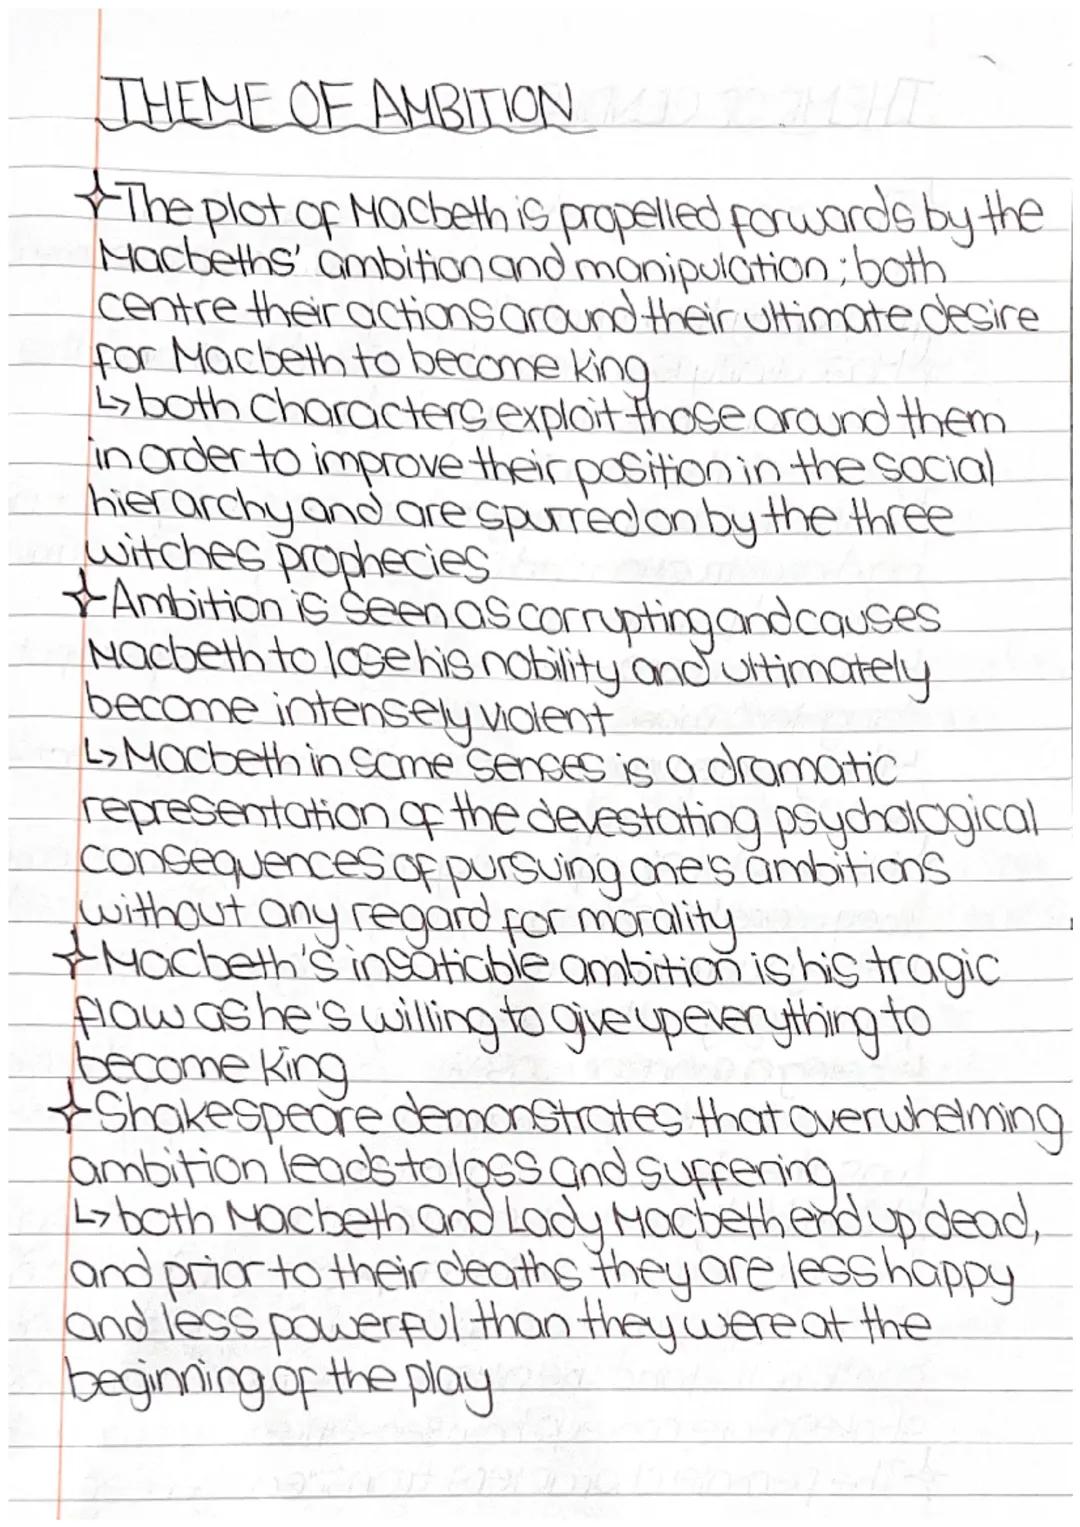 THEME OF AMBITION
The plot of Macbeth is propelled forwards by the
Macbeths' ambition and manipulation; both
centre their actions around their ultimate desire
for Macbeth to become king
↳ both characters exploit those around them
in order to improve their position in the social
hierarchy and are spurred on by the three
witches prophecies
Ambition is seen as corrupting and causes
Macbeth to lose his nobility and ultimately
become intensely violent
↳ Macbeth in some senses is a dramatic
representation of the devestating psychological
consequences of pursuing one's ambitions
without any regard for morality
Macbeth's insatiable ambition is his tragic
flaw as he's willing to give up everything to
become king
Shakespeare demonstrates that overwhelming
ambition leads to loss and suffering
↳ both Macbeth and Lady Macbeth end up dead,
and prior to their deaths they are less happy
and less powerful than they were at the
beginning of the play